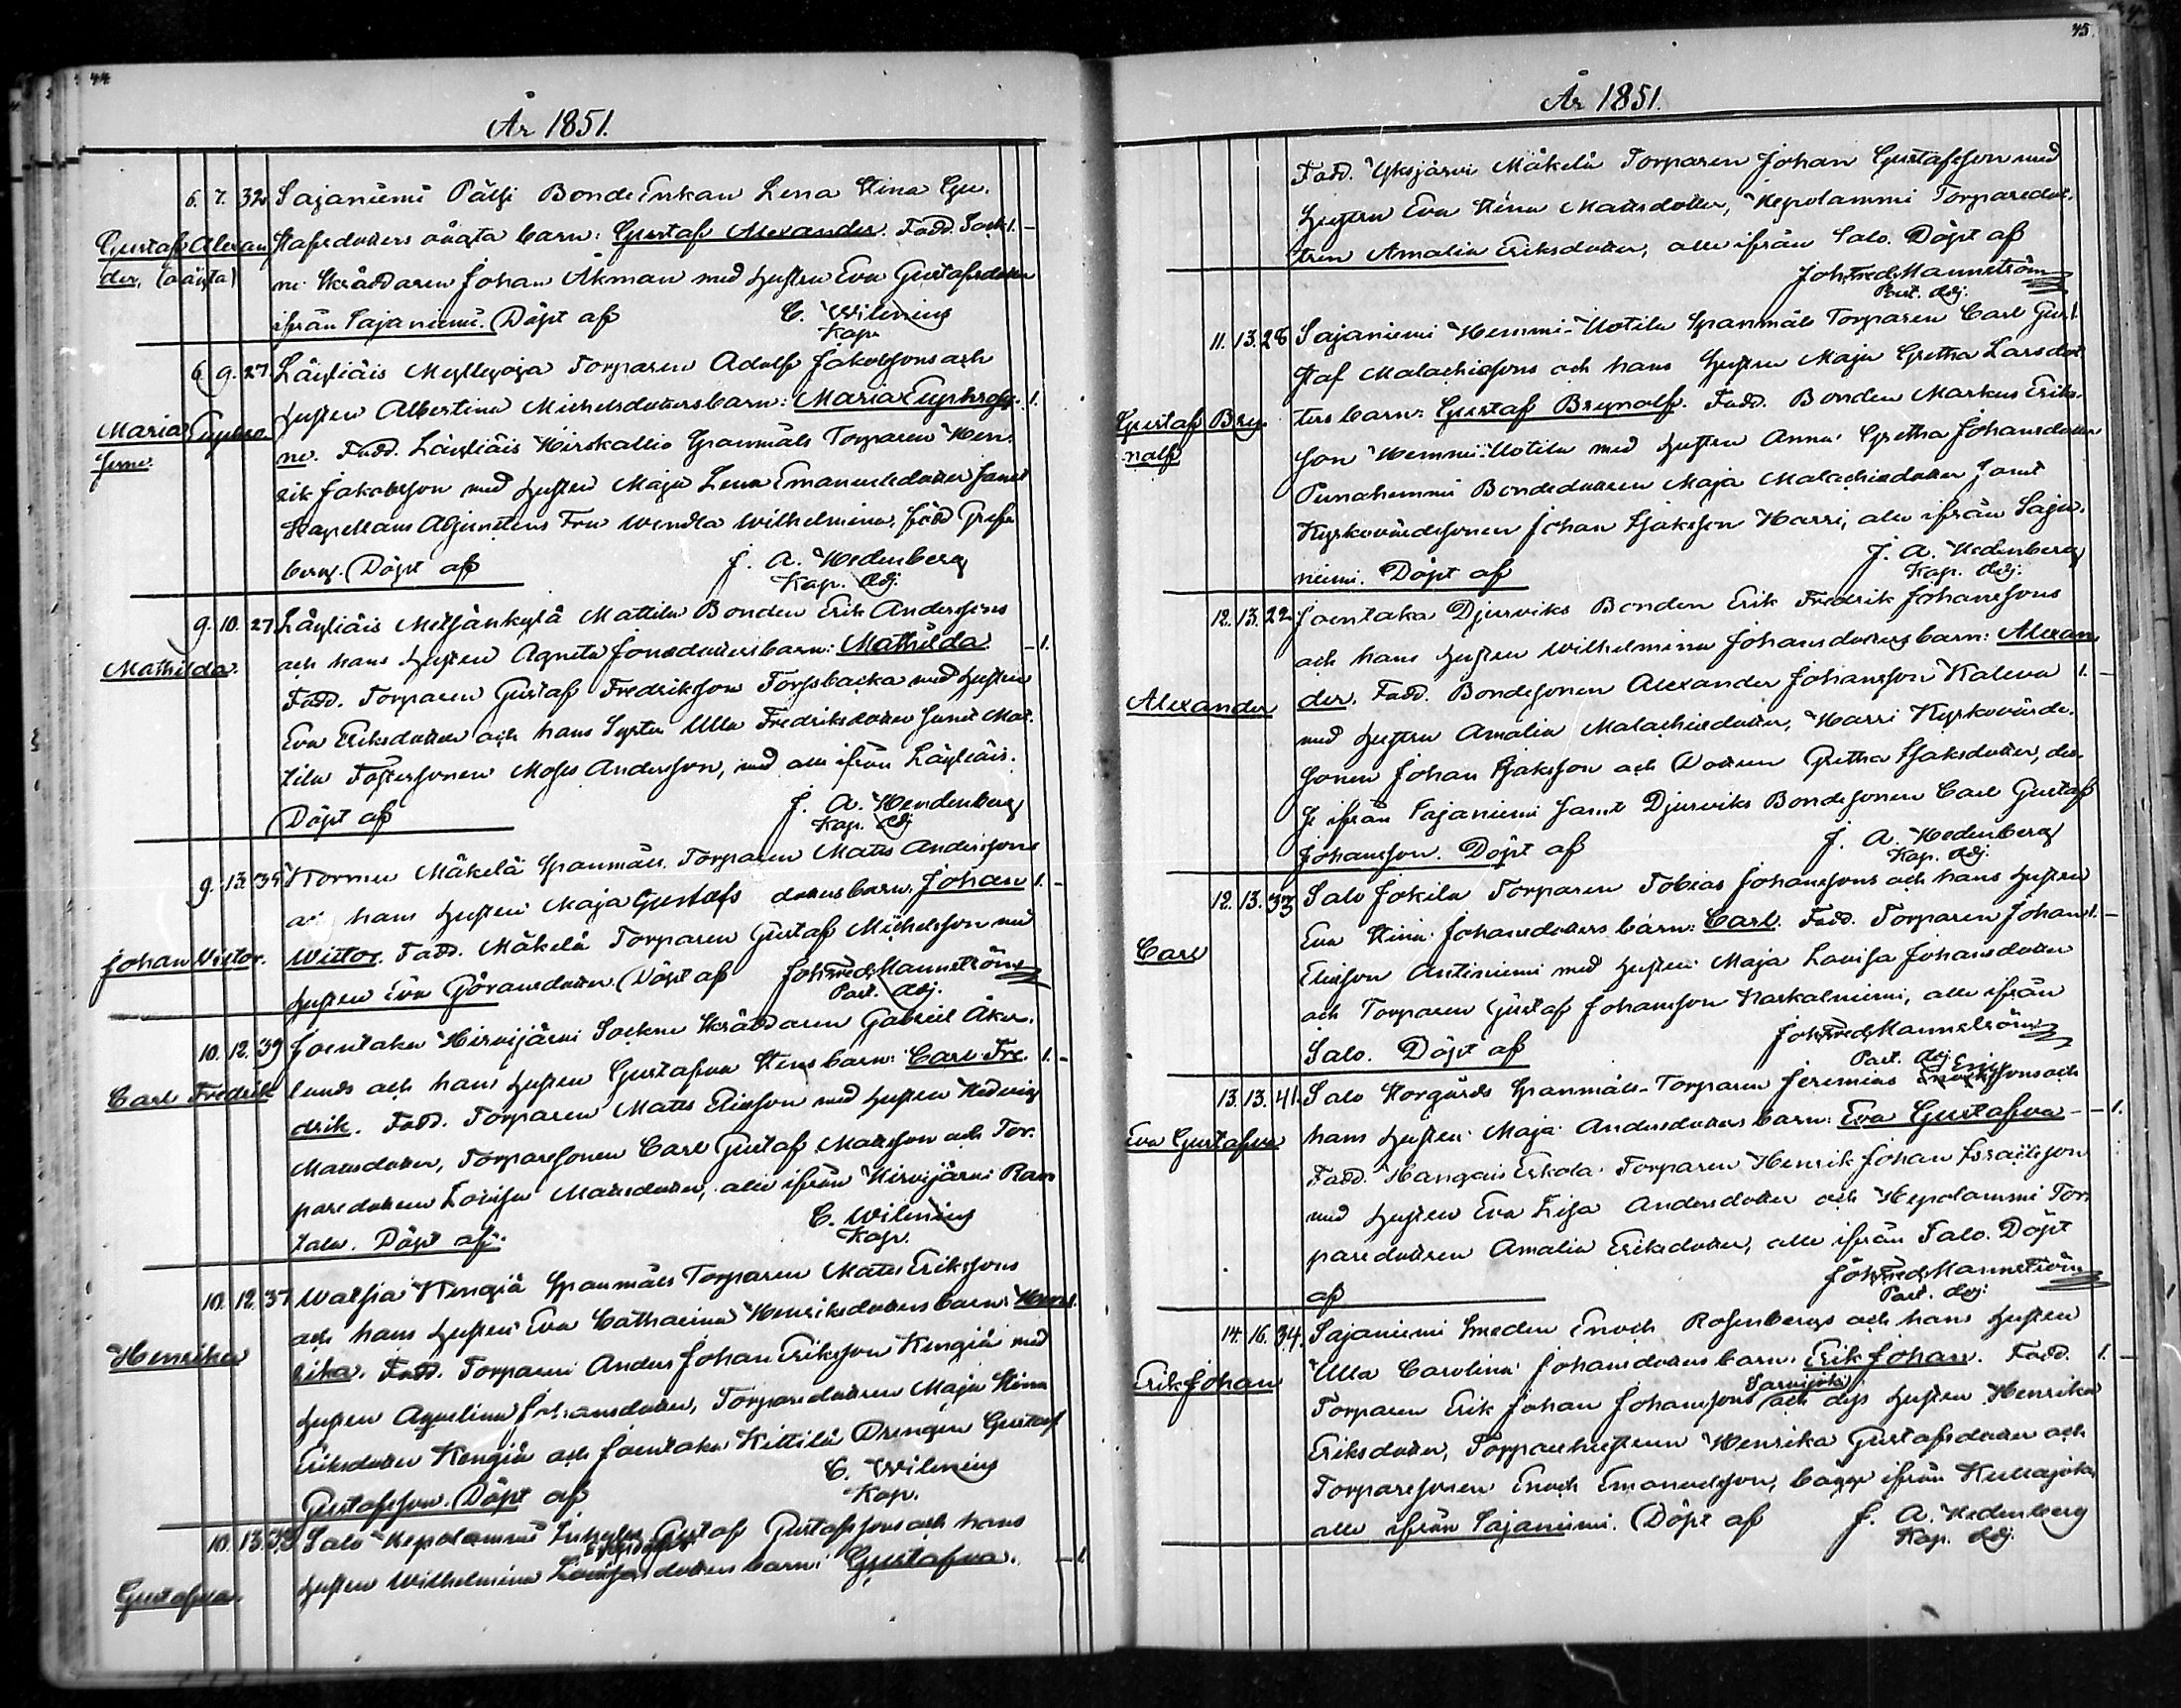 44
År 1851.
6. 7. 32. Sajaniemi Pälsi Bonde Enkan Lena Stina Gu-
Gustaf Alexan stafsdotters oägta barn: Gustaf Alexander. Fadd. Sock- 1. -
der, (oägta) ne Skräddaren Johan Åkman med hustru Eva Gustafsdotter
ifrån Sajaniemi. Döpt af C. Wilenius
Kap.
6. 9. 27. Läyliäis Myllyoja Torparen Adolf Jakobssons och
hustru Albertina Michelsdotters barn: Maria Euphrosy- 1.
Maria Euphro-
syne. ne. Fadd. Läyliäis Hirskallio Spanmåls Torparen Hen-
rik Jakobsson med hustru Maja Lena Emanuelsdotter samt
Kapellans Adjunctens Fru Wendla Wilhelmina, född Grefven-
berg. Döpt af J. A. Hedenberg
Kap. Adj.
9. 10. 27. Läyliäis Metsänkylä Mattila Bonden Erik Anderssons
Mathilda. och hans hustru Agneta Jonasdotters barn: Mathilda. - 1.
Fadd. Torparen Gustaf Fredriksson Torpsbacka med hustru
Eva Eriksdotter och hans Syster Ulla Fredriksdotter samt Mat-
tila Fostersonen Moses Andersson, med alla ifrån Läyliäis.
Döpt af J. A. Hendenberg
Kap. Adj.
9. 13. 35. Kormu Mäkelä Spanmåls Torparen Matts Anderssons
och hans hustru Maja Gustafs dotters barn: Johan 1. -
Johan Victor. Wictor. Fadd. Mäkelä Torparen Gustaf Michelsson med
hustru Eva Göransdotter. Döpt af Joh. Fred. Mannström
Past. Adj.
10. 12. 39. Joentaka Hirvijärvi Sockne Skräddaren Gabriel Åker-
Carl Fredrik lunds och hans hustru Gustafva Stens barn: Carl Fre- 1. -
drik. Fadd. Torparen Matts Eliasson med hustru Hedvig
Mattsdotter, Torparesonen Carl Gustaf Mattsson och Tor-
paredottren Lovisa Mattsdotter, alla ifrån Hirvijärvi Ran-
tala. Döpt af C. Wilenius
Kap.
10. 12. 37. Watsia Kengiä Spanmåls Torparen Matts Erikssons
Henrika och hans hustru Eva Catharina Henriksdotters barn: Hen- 1.
rika. Fadd. Torparen Anders Johan Eriksson Kengiä med
hustru Aqvelina Johansdotter, Torparedottren Maja Stina
Eriksdotter Kengiä och Joentaka Kittilä Drengen Gustaf
Gustafsson. Döpt af C. Wilenius
Kap.
10. 13. 33. Salo Hepolammi Gustaf Gustafssons och hans
Gustafva. hustru Wilhelmina dotters barn: Gustafva. - 1.
45.
År 1851.
Fadd. Yksjärvi Mäkelä Torparen Johan Gustafsson med
hustru Eva Stina Mattsdotter, Hepolammi Torparedot-
tren Amalia Eriksdotter, alla ifrån Salo. Döpt af
Joh. Fred. Mannström
Past. Adj.
11. 13. 28. Sajaniemi Hemmi-Uotila Spanmåls Torparen Carl Gu- 1.
staf Malachissons och hans hustru Maja Gretha Larsdot-
Gustaf Bry- ters barn: Gustaf Brynolf. Fadd. Bonden Markus Eriks-
nolf son Hemmi-Uotila med hustru Anna Gretha Johansdotter
Punahemmi Bondedottren Maja Malachiedotter samt
Kyrkovärdssonen Johan Isaksson Harri, alla ifrån Saja-
niemi. Döpt af J. A. Hedenberg
Kap. Adj.
12. 13. 22. Joentaka Djurviks Bonden Erik Fredrik Johanssons
och hans hustru Wilhelmina Johansdotters barn: Alexan-
Alexander der. Fadd. Bondesonen Alexander Johansson Kaleva 1. -
med hustru Amalia Malachiedotter, Harri Kyrkovärds-
sonen Johan Isaksson och Dottren Gretha Isaksdotter, des-
se ifrån Sajaniemi samt Djurviks Bondesonen Carl Gustaf
Johansson. Döpt af J. A. Hedenberg
Kap. Adj.
12. 13. 33. Salo Jokila Torparen Tobias Johanssons och hans hustru
Carl Eva Stina Johansdotters barn: Carl. Fadd. Torparen Johan 1. -
Eliasson Antiniemi med hustru Maja Lovisa Johansdotter
och Torparen Gustaf Johansson Haskalniemi, alla ifrån
Salo. Döpt af Joh. Fred. Mannström
Past. Adj.
13. 13. 41. Salo Storgårds Spanmåls-Torparen Jeremias Erikssons och
Eva Gustafva hans hustru Maja Andersdotters barn: Eva Gustafva - - 1.
Fadd. Hangais Eskola Torparen Henrik Johan Israelsson
med hustru Eva Lisa Andersdotter och Hepolammi Tor-
paredottren Amalia Eriksdotter, alla ifrån Salo. Döpt
af Joh. Fred. Mannström
Past. Adj.
14. 16. 34. Sajaniemi Smeden Enoch Rosenbergs och hans hustru
Erik Johan Ulla Carolina Johansdotters barn: Erik Johan. Fadd. 1. -
Torparen Erik Johan Johanssons Sarvijoki och dess hustru Henrika
Eriksdotter, Torparehustrun Henrika Gustafsdotter och
Torparesonen Enoch Emanuelsson, bägge ifrån Kuttajoki,
alla ifrån Sajaniemi. Döpt af J. A. Hedenberg
Kap. Adj.